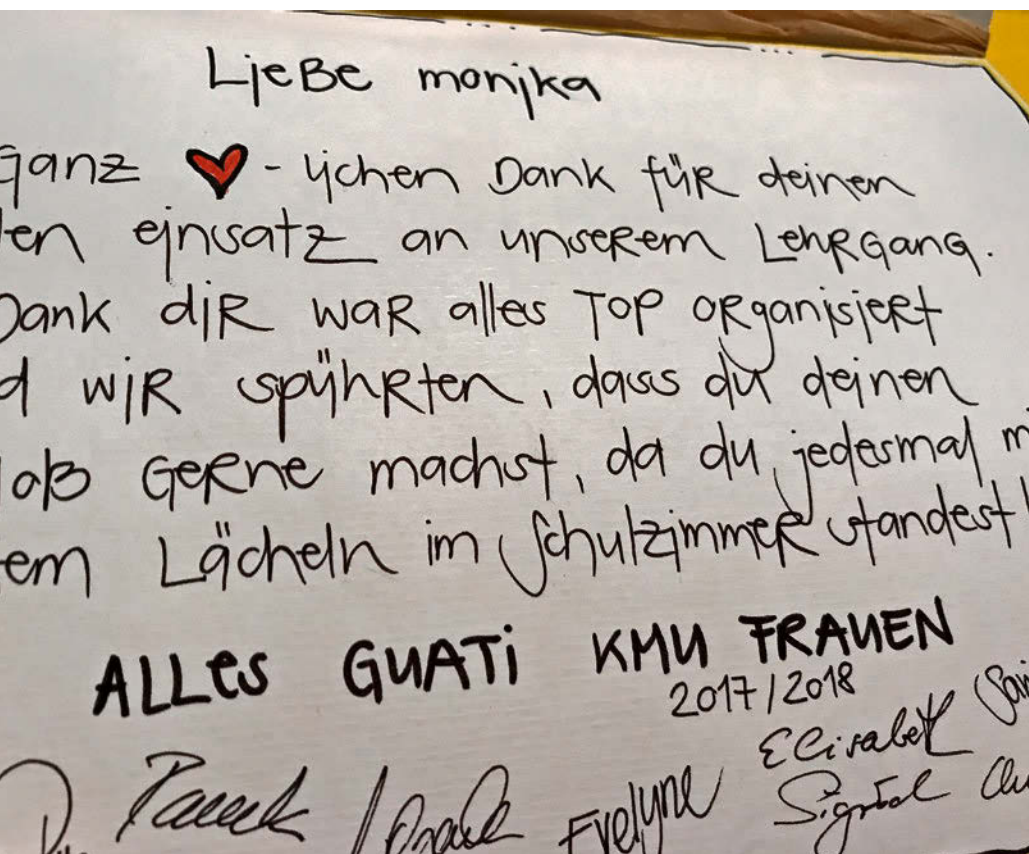 Liebe monika
ganz ♥-lichen Dank für deinen
en einsatz an unserem Lehrgang.
Dank dir war alles Top organisiert
d wir spührten, dass du deinen
ob gerne machst, da du jedesmal m
em Lächeln im Schulzimmer standest
ALLES GUATi KMU FRAUEN
2017/2018
Elisabet
Evelyne